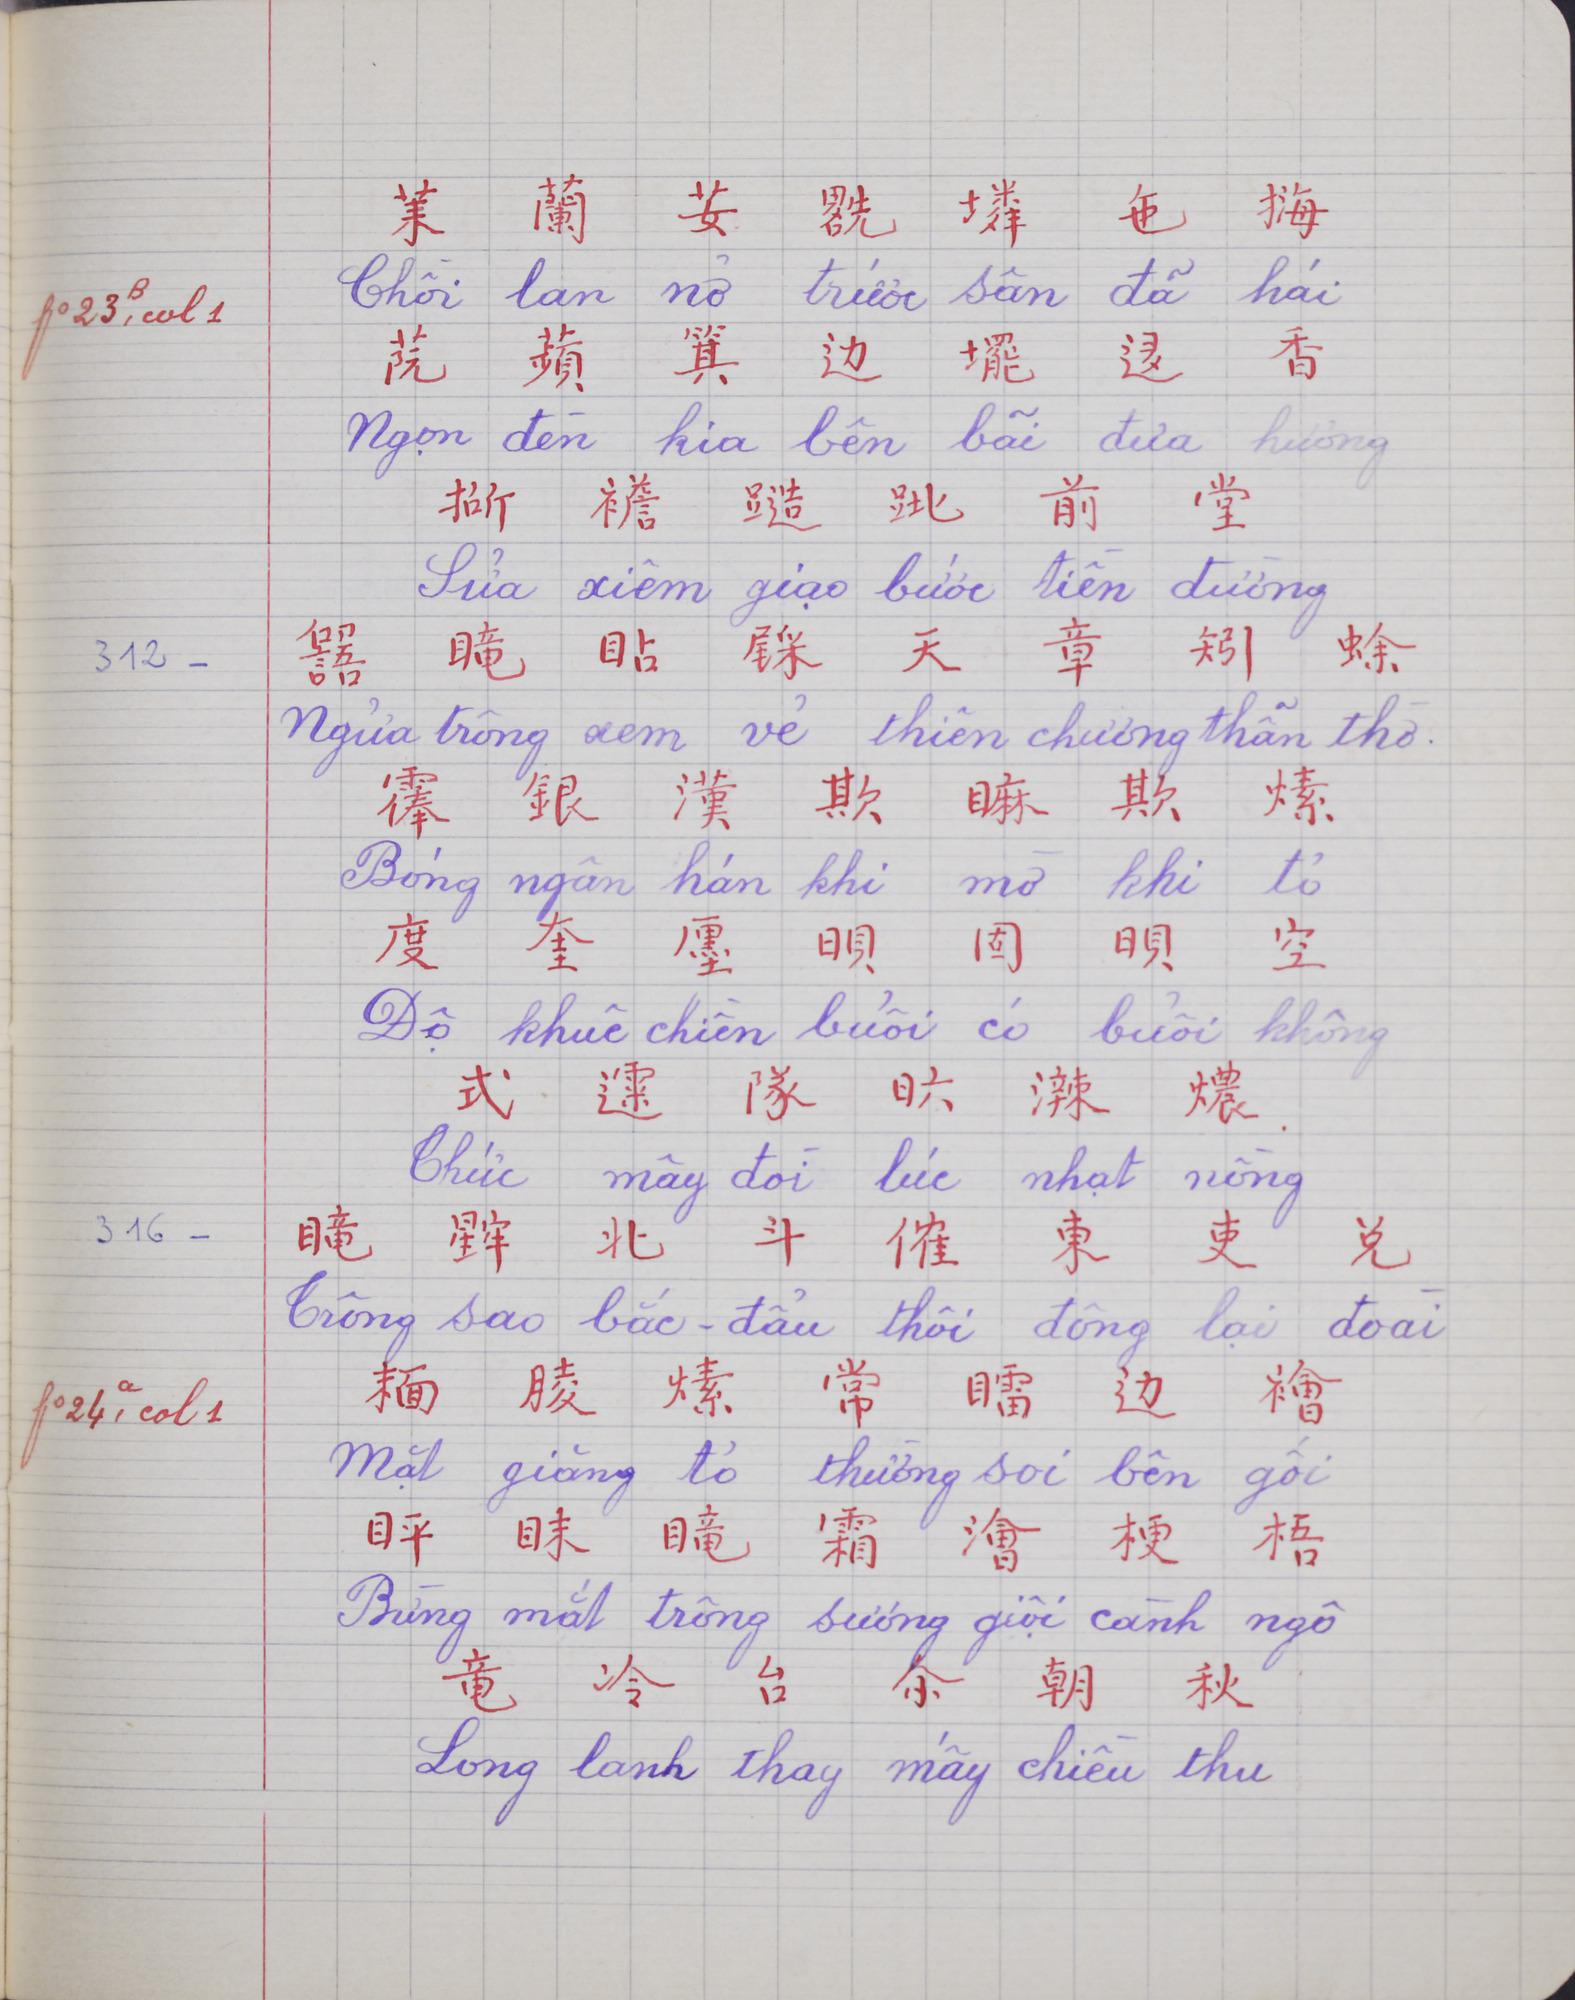 茱 蘭 芺 𨎠 墣 㐌 挴
fº 23, B col 1
Chồi lan nở trước sân đã hái
蘋 箕 边 𡓁 迻 香
Ngọn đèn kia bên bãi đưa hương
襜 前 堂
Sửa xiêm giạo bước tiền đường
312 –
瞻 天 章 矧 蜍
Ngửa trông xem vẻ thiên chương thẫn thờ.
銀 漢 欺 𥉬 欺 𤐝
Bóng ngân hán khi mờ khi tỏ
度 奎 㕓 𣇜 固 𣇜 空
Độ khuê chiền buổi có buổi không
式 𨗛 隊 𣅶 濃
Thức mây đòi lúc nhạt nồng
316 –
𥊚 北 斗 催 東 吏 兑
Trông sao bắc-đẩu thôi đông lại đoài
fº 24, a col 1
𩈘 𦝄 𤐝 常 𥋸 边 襘
Mặt giăng tỏ thường soi bên gối
眜 𥊚 霜 澮 梗 梧
Bừng mắt trông sương giội cành ngô
竜 冷 台 尒 朝 秋
Long lanh thay mấy chiều thu